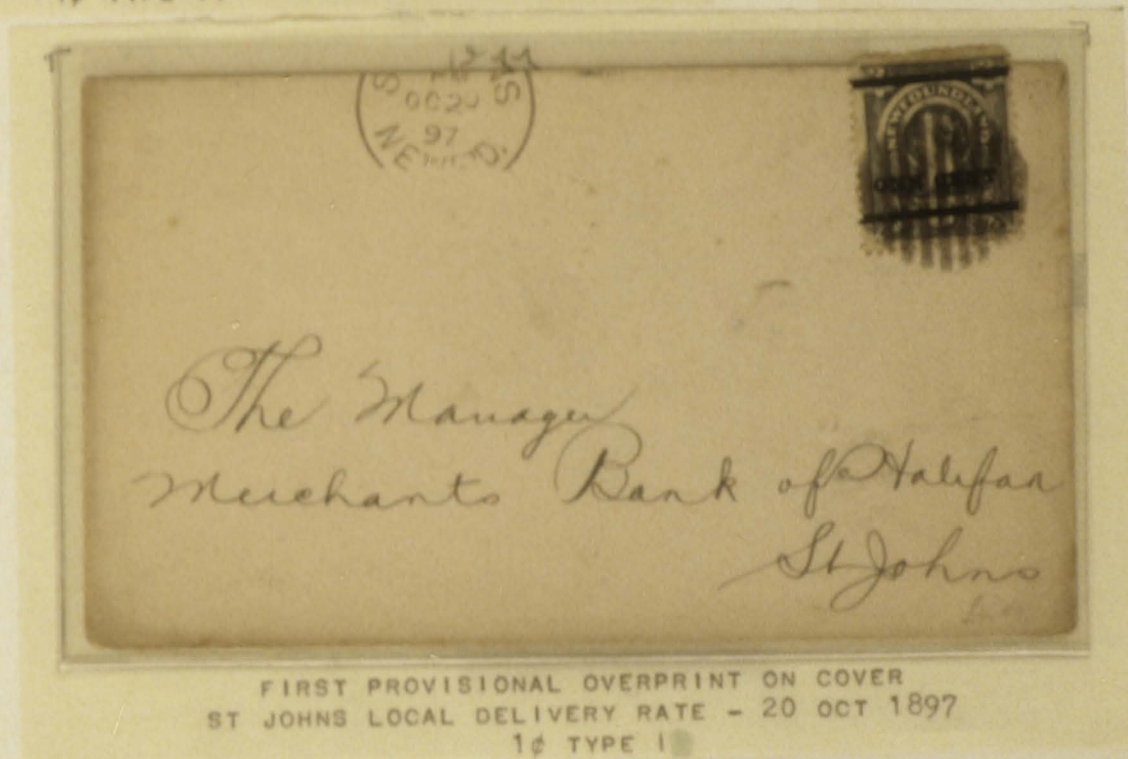 OC 20
97
NEWFOUNDLAND
ONE CENT
The Manager
Merchants Bank of Halifax
St Johns
FIRST PROVISIONAL OVERPRINT ON COVER
ST JOHNS LOCAL DELIVERY RATE - 20 OCT 1897
1¢ TYPE I